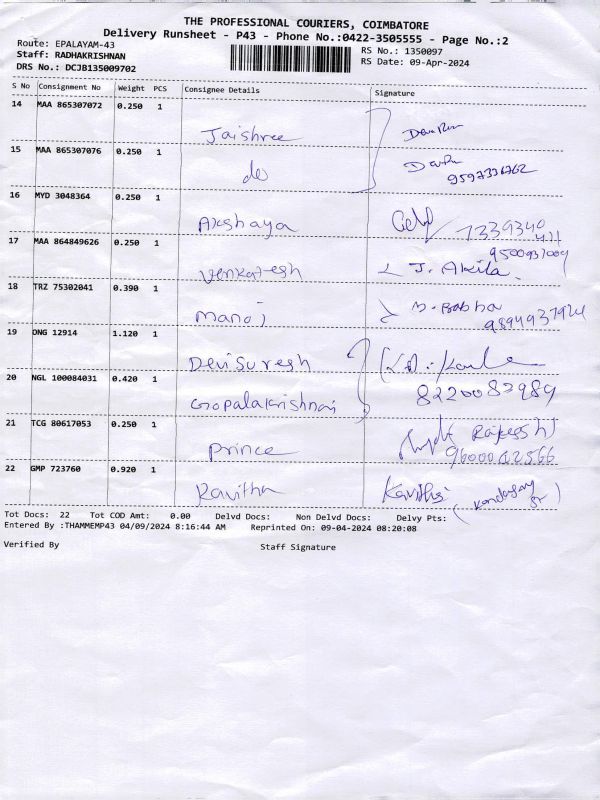 THE PROFESSIONAL COURIERS, COIMBATORE
Delivery Runsheet - P43 - Phone No.:0422-3505555 - Page No.:2
Route: EPALAYAM-43
RS No.: 1350097
Staff: RADHAKRISHNAN
RS Date: 09-Apr-2024
DRS No.: DCJB135009702
S No Consignment No Weight PCS Consignee Details Signature
14 MAA 865307072 0.250 1
Jaishree
15 MAA 865307076 0.250 1
do
16 MYD 3048364 0.250 1
Akshaya
17 MAA 864849626 0.250 1
Venkatesh J. Akila
18 TRZ 75302041 0.390 1
Manoj
9894937924
19 DNG 12914 1.120 1
Devisuresh
20 NGL 100084031 0.420 1
Gopalakrishnan 8220082989
21 TCG 80617053 0.250 1
Prince
22 GMP 723760 0.920 1
Kavitha
Tot Docs: 22 Tot COD Amt: 0.00 Delvd Docs: Non Delvd Docs: Delvy Pts:
Entered By :THAMMEMP43 04/09/2024 8:16:44 AM Reprinted On: 09-04-2024 08:20:08
Verified By Staff Signature